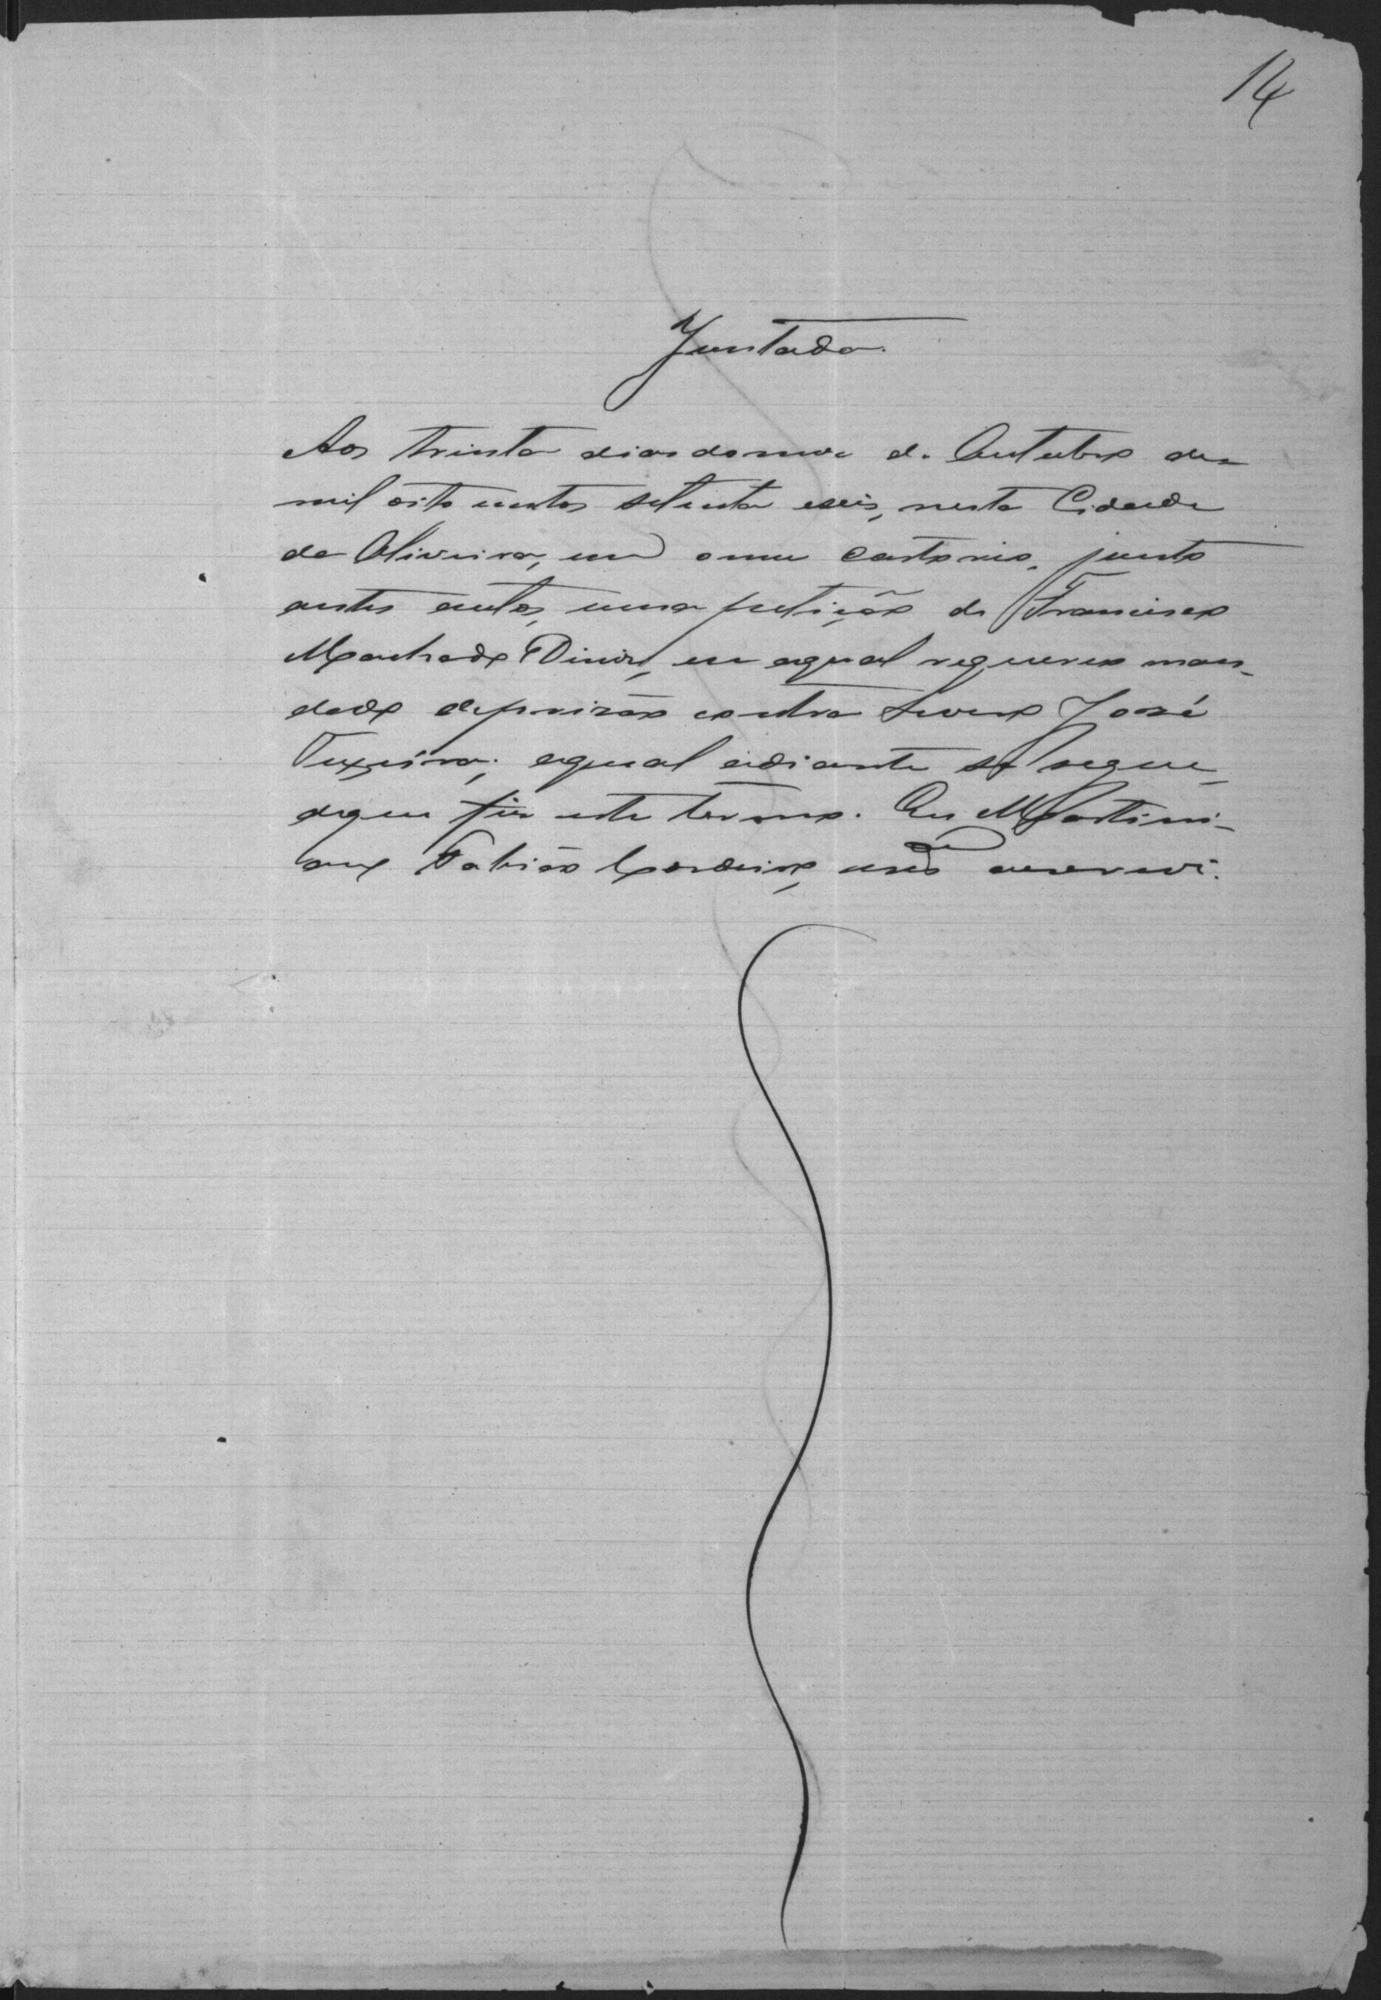 14
Juntada.
Aos trinta dias do mez de Outubro de
mil oito centos setenta e seis, nesta Cidade
de Oliveira, em o meu cartorio, junto
a estes autos, uma petição de Francisco
Machado Diniz, em a qual requereo man-
dado de prizão contra Severo José
Teixeira; a qual adiante se segue,
de que fiz este termo. Eu Martini-
ano Fabião Cordeiro, escrevi.